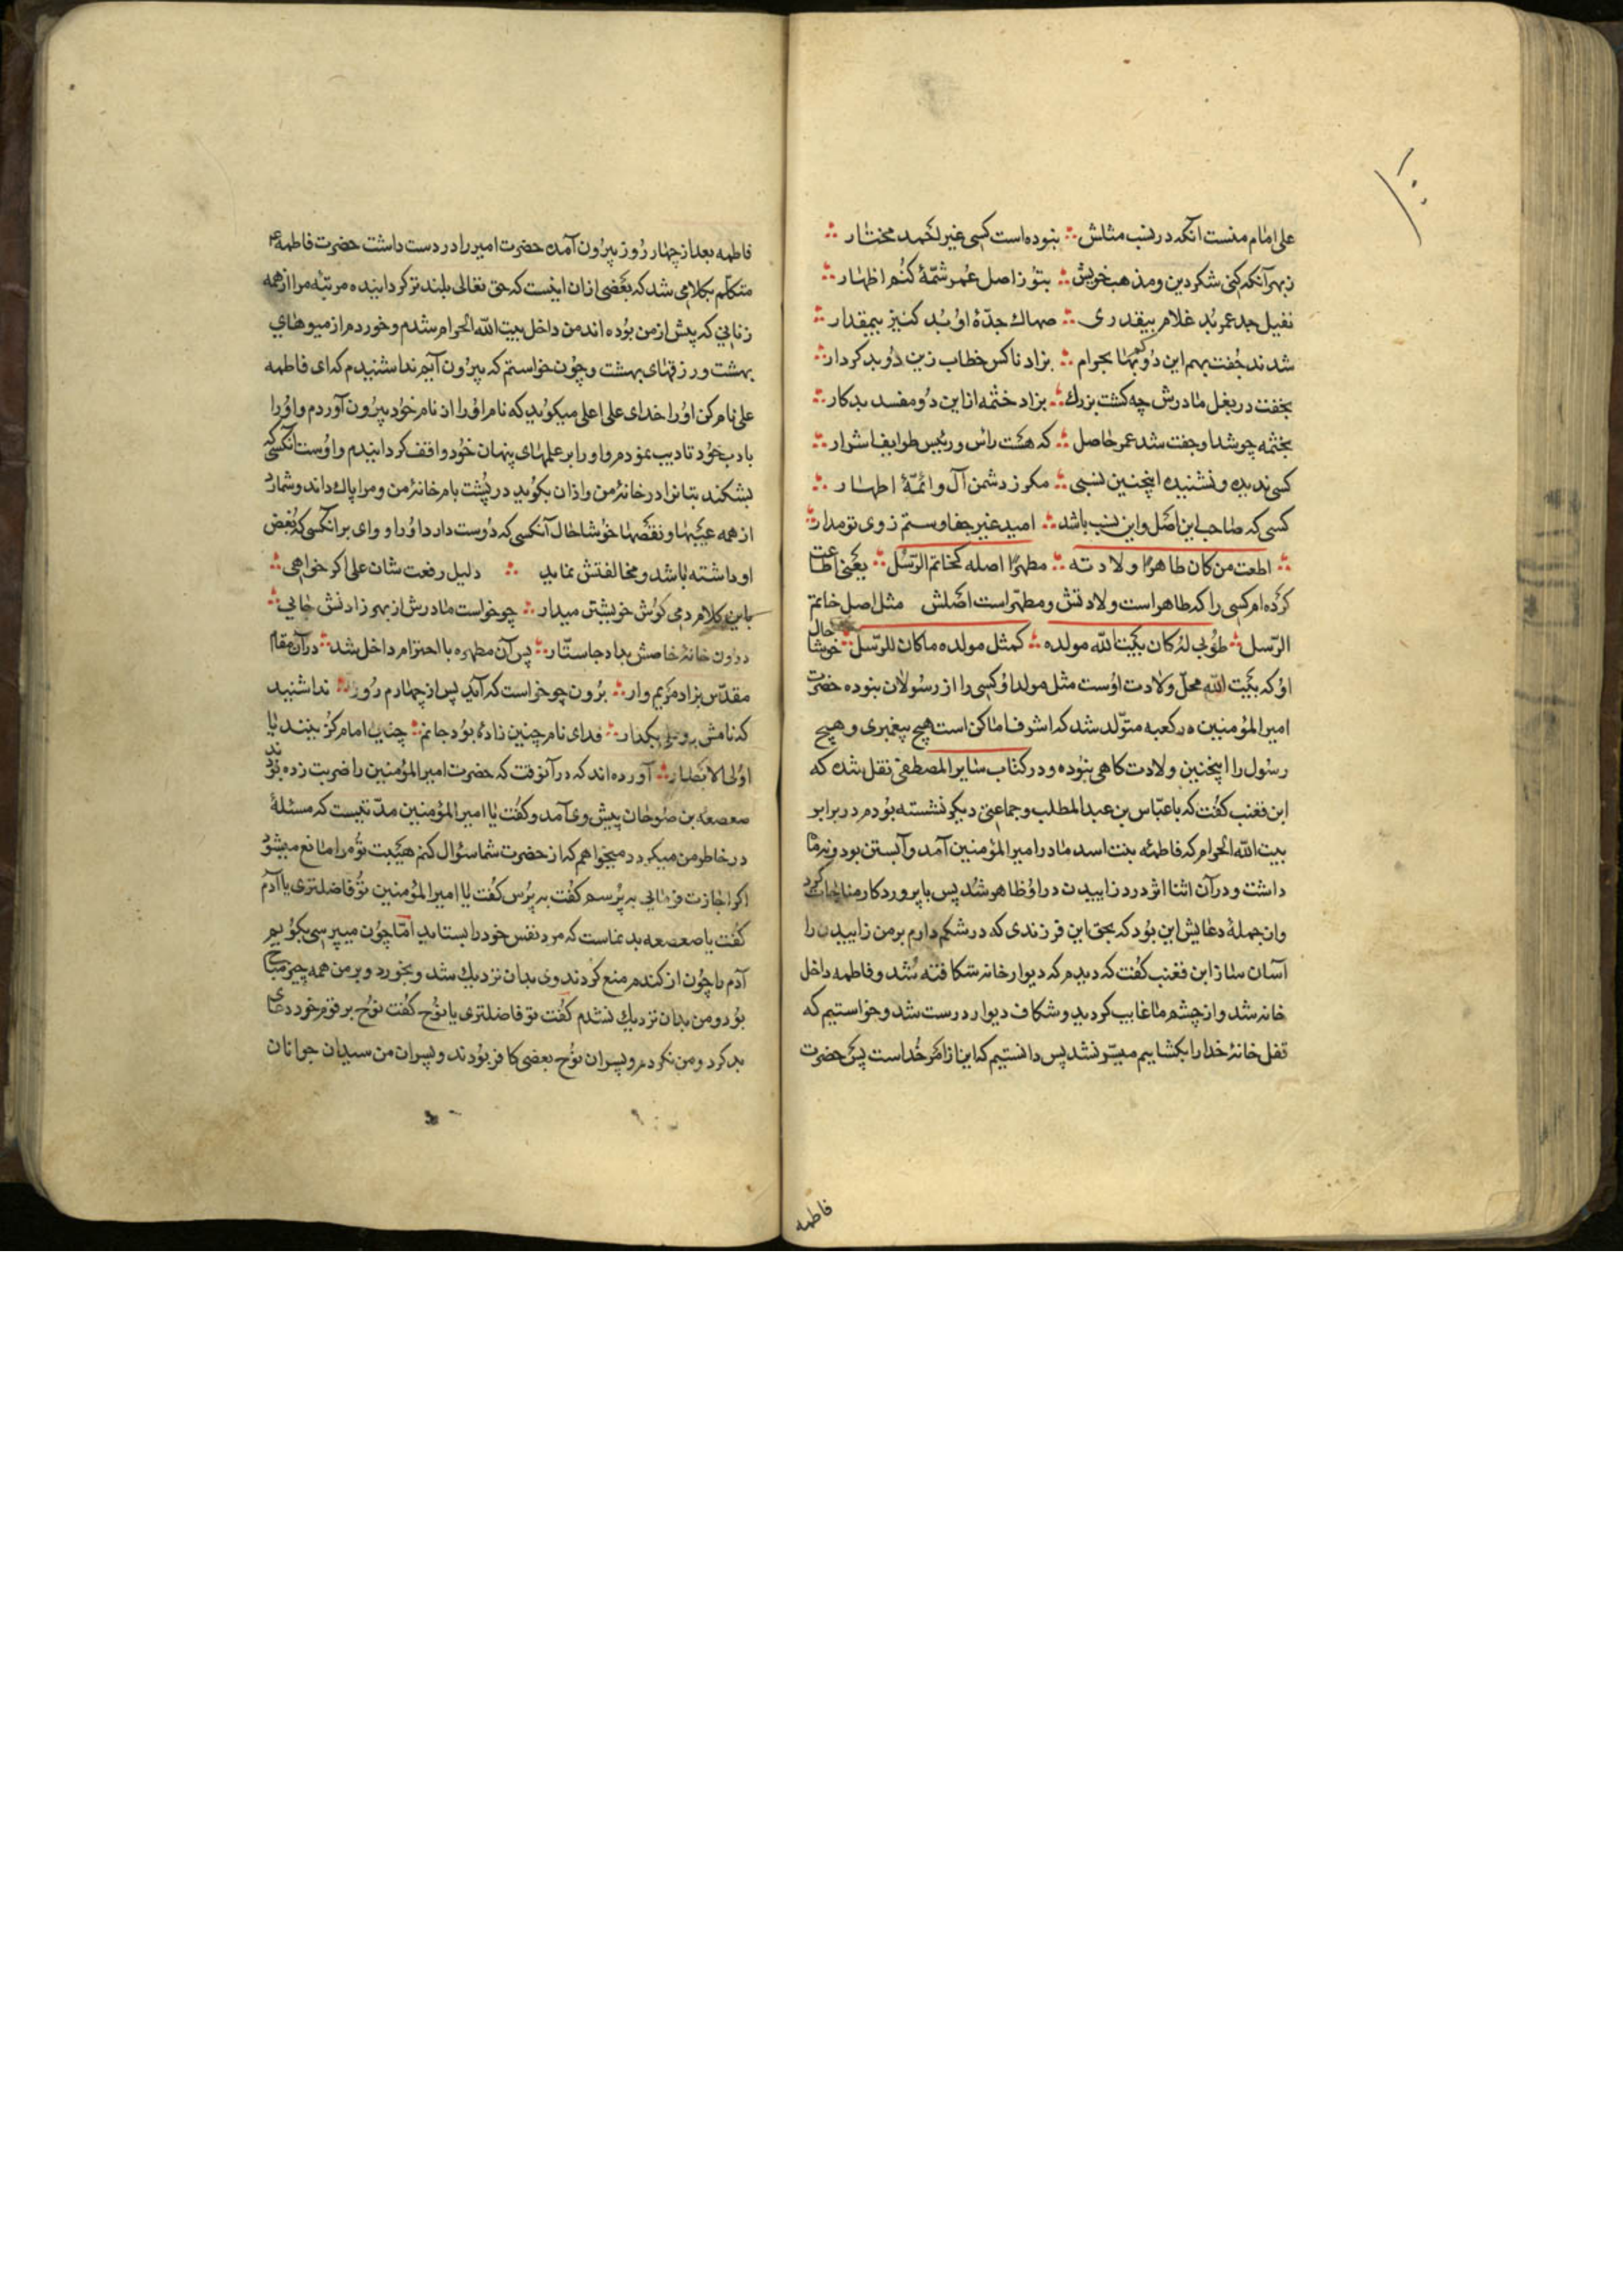 ۱۰
علی امام منست آنکه در نسب مثلش ∴ نبوده است کسی غیر احمد مختار ∴
ز بهر آنکه کنی شک در دین و مذهب خویش ∴ بتو ز اصل عمر شمّهٔ کنم اظهار ∴
نفیل جد عمر بُد غلام بیقدری ∴ صهاک جدّهٔ او بُد کنیز بیمقدار ∴
شدند جفت بهم این دو بحرام ∴ بزاد ناکس خطاب زین دو بد کردار ∴
بخفت در بغل مادرش چه کشت بزرك ∴ بزاد ختمه از این دو مفسد بدکار ∴
بختمه چو شد او جفت شد عمر حاصل ∴ که هست راس و رئیس طوایف اشرار ∴
کسی ندیده و نشنیده اینچنین نسبی ∴ مکر ز دشمن آل و ائمّهٔ اطهار ∴
کسی که صاحب این اصل و این نسب باشد ∴ امید غیر جفا و ستم ز وی تو مدار ∴
∴ اطعت من کان طاهرًا ولادته ∴ مطهرًا اصله کخاتم الرّسل ∴ یعنی اطاعت
کرده‌ام کسی را که طاهر است ولادتش و مطهّر است اصلش مثل اصل خاتم
الرّسل ∴ طوبی له کان ببیت الله مولده ∴ کمثل مولده ماکان للرّسل ∴ خوشا حال
او که ببیت الله محلّ ولادت اوست مثل مولد او کسی را از رسولان نبوده حضرت
امیر المؤمنین در کعبه متولّد شد که اشرف اماکن است هیچ پیغمبری و هیچ
رسول را اینچنین ولادت کاهی نبوده و در کتاب سایر المصطفی نقل شده که
ابن قعنب کفت که با عبّاس بن عبد المطلب و جماعتی دیکر نشسته بودم در برابر
بیت الله الحرام که فاطمه بنت اسد مادر امیر المؤمنین آمد و آبستن بود و نه ماه
داشت و در آن اثنا اثر درد زاییدن در او ظاهر شد پس با پروردکار مناجات کرد
و از جملهٔ دعایش این بود که بحق این فرزندی که در شکم دارم بر من زاییدن را
آسان ساز ابن قعنب کفت که دیدم که دیوار خانه شکافته شد و فاطمه داخل
خانه شد و از چشم ما غایب کردید و شکاف دیوار درست شد و خواستیم که
قفل خانهٔ خدا را بکشاییم میسّر نشد پس دانستیم که این از امر خداست پس حضرت
فاطمه
فاطمه بعد از چهار روز بیرون آمد حضرت امیر را در دست داشت حضرت فاطمه ع
متکلّم بکلامی شد که بعضی از ان اینست که حق تعالی بلندتر کردانیده مرتبهٔ مرا از همه
زنانی که پیش از من بوده‌اند من داخل بیت الله الحرام شدم و خوردم از میوهای
بهشت و رزقهای بهشت و چون خواستم که بیرون آیم ندا شنیدم که ای فاطمه
علی نام کن او را خدای علی اعلی میکوید که نام او را از نام خود بیرون آوردم و او را
بادب خود تادیب نمودم و او را بر علمهای پنهان خود واقف کردانیدم و اوست آنکسی که
بشکند بتانرا در خانهٔ من و اذان بکوید در پشت بام خانهٔ من و مرا پاك داند و شمارد
از همه عیبها و نقصها خوشا حال آنکسی که دوست دارد او را و وای بر انکسی که بغض
او داشته باشد و مخالفتش نماید ∴ دلیل رفعت شان علی اکر خواهی ∴
باین کلام دمی کوش خویشتن میدار ∴ چو خواست مادرش از بهر زادنش جایی ∴
درون خانهٔ خاصش بداد جا ستّار ∴ پس آن مطهره با احترام داخل شد ∴ در آن مقام
مقدّس بزاد مریم وار ∴ برون چو خواست که آید پس از چهارم روز ∴ ندا شنید
که نامش برو علی بکذار ∴ فدای نام چنین زادهٔ بود جانم ∴ چنین امام کزینید یا
اولی الابصار ∴ آورده‌اند که در آنوقت که حضرت امیر المؤمنین را ضربت زده بودند
صعصعه بن صوحان پیش وی آمد و کفت یا امیر المؤمنین مدّتیست که مسئلهٔ
در خاطر من میکردد میخواهم که از حضرت شما سؤال کنم هیبت تو مرا مانع میشود
اکر اجازت فرمایی به پرسم کفت به پرس کفت یا امیر المؤمنین تو فاضلتری یا آدم
کفت یا صعصعه بد نماست که مرد نفس خود را بستاید امّا چون میپرسی بکویم
آدم را چون از کندم منع کردند وی بدان نزدیك شد و بخورد و بر من همه چیز مباح
بود و من بدان نزدیك نشدم کفت تو فاضلتری یا نوح کفت نوح بر قوم خود دعای
بد کرد و من نکردم و پسران نوح بعضی کافر بودند و پسران من سیدان جوانان